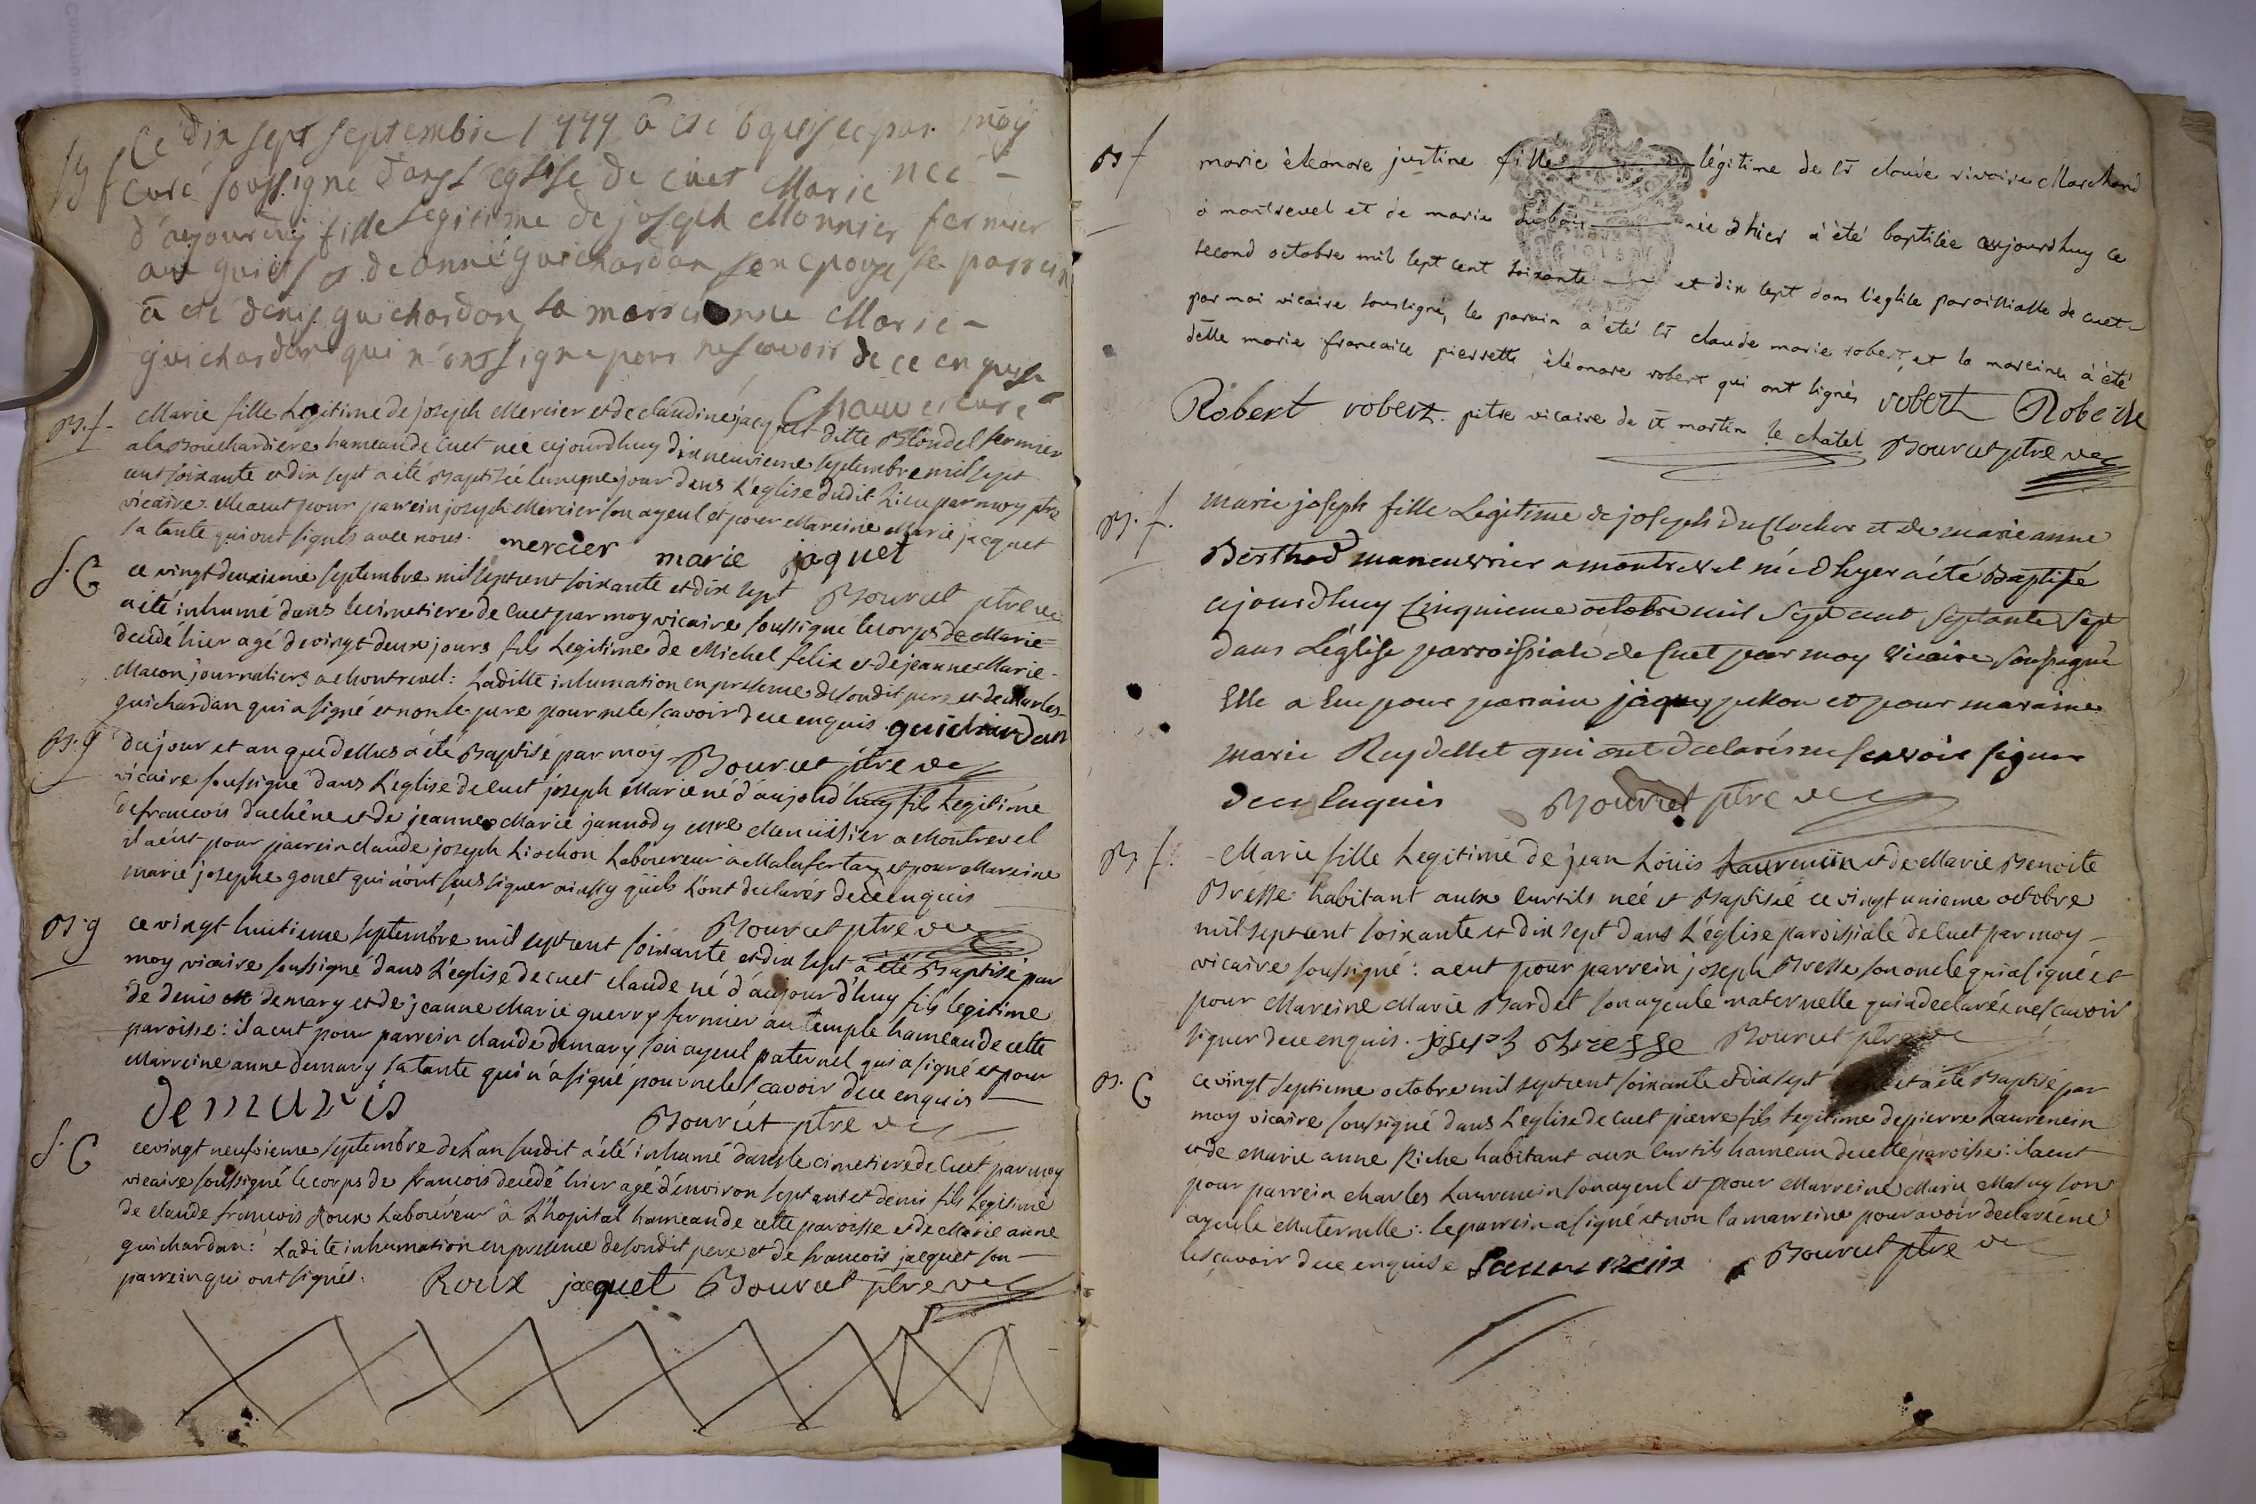 B f Ce dix sept septembre 1777 a ete baptisee par moy
curé soussigne dans l'eglise de cuet Marie neé
d'aujourduy fille legitime de joseph Monnier fermier
de anne guichardon son epouse le parrein
a ete denis guichardon la marreinne Marie
guichardon qui n'ont signe pour ne scavoir de ce enquis
Chauvet curé
B. f. Marie fille Legitime de joseph Mercier et de claudine jacquet ditte Blondel fermier
a la Bouchardiere hameau de Cuet neé ajourdhuy dix neuvieme septembre mil sept
cent soixante et dix sept a eté Baptisée le meme jour dans L'eglise dudit Lieu par moy ptre
vicaire. Elle a eut pour parrein joseph Mercier son ayeul et pour Mareine Marie jacquet
sa tante qui ont signés avec nous. mercier marie jaquet
Bourcet ptre vic
S. G ce vingt deuxieme septembre mil sept cent soixante et dix sept
a été inhumé dans le cimetiere de Cuet par moy vicaire soussigné le corps de Marie
decedé hier agé de vingt deux jours fils Legitime de Michel felix et de jeanne Marie
Macon journaliers a Montrevel: Laditte inhumation en presence de sondit pere et de charles
guichardan qui a signé et non le pere pour ne le scavoir de ce enquis guichardan
B. g du jour et an que dessus a été Baptisé par moy Bourcet ptre vic
vicaire soussigné dans L'eglise de Cuet joseph Marie né d'aujourd'huy fils Legitime
de francois duchêne et de jeanne Marie jannody Mre Menuisier a Montrevel
il a eut pour parrein claude joseph Liochon Laboureur a Malafertay et pour Mareine
marie josephe gonet qui n'ont sçus signer ainsy qu'ils L'ont declarés de ce enquis
Bourcet ptre vic
B. g ce vingt huitieme septembre mil sept cent soixante et dix sept a été Baptisé par
moy vicaire soussigné dans L'eglise de Cuet claude né d'aujour d'huy fils legitime
de denis demary et de jeanne Marie guerry fermier au temple hameau de cette
paroisse: il a eut pour parrein claude demary son ayeul paternel qui a signé et pour
Marreine anne demary sa tante qui n'a signé pour ne le scavoir de ce enquis
demaris Bourcet ptre vic
S. G ce vingt neufvieme septembre de L'an susdit a été inhumé dans le cimetiere de Cuet par moy
vicaire soussigné le corps de francois decedé hier agé d'environ sept ans et demi fils Legitime
de claude francois Roux Laboureur à L'hopital hameau de cette paroisse et de Marie anne
guichardan: Ladite inhumation en presence de sondit pere et de francois jacquet son
parrein qui ont signés. Roux jacquet Bourcet ptre vic
B f marie éléonore justine fille légitime de sr claude rivoire Marchand
à montrevel et de marie dubois née d'hier a été baptisée aujourdhuy ce
second octobre mil sept cent soixante et dix sept dans l'eglise paroissialle de cuet
par moi vicaire soussigné, le parain a été sr claude marie robert, et la mareine a été
delle marie francaise pierrette éléonore robert qui ont signés robert Robert
Robert robert. ptre vicaire de st martin le chatel Bourcet ptre vic
B. f. marie joseph fille Legitime de joseph du Clocher et de marie anne
Berthod maneuvrier a montrevel neé d'hyer a été Baptisé
ajourdhuy cinquieme octobre mil sept cent septante sept
dans L'église parroissiale de Cuet par moy vicaire soussigné
Elle a eu pour parrain jaque et pour maraine
marie Reydellet qui ont declarés ne scavoir signer
de ce Enquis Bourcet ptre vic
B. f. Marie fille Legitime de jean Loüis Laurencin et de Marie Benoite
Bresse habitant aux Curtils neé et Baptisée ce vingt unieme octobre
mil sept cent soixante et dix sept dans L'église paroissiale de Cuet par moy
vicaire soussigné: a eut pour parrein joseph Bresse son oncle qui a signé et
pour Mareine Marie Bardet son ayeule maternelle qui a declarée ne scavoir
signer de ce enquis. joseph Bresse Bourcet ptre vic
B. G ce vingt septieme octobre mil sept cent soixante et dix sept et a été Baptisé par
moy vicaire soussigné dans L'eglise de Cuet pierre fils legitime de pierre Laurencin
et de Marie anne Riche habitant aux Curtils hameau de cette paroisse: il a eut
pour parrein charles Laurencin son ayeul et pour Marreine Marie Mathy son
ayeule Maternelle: le parrein a signé et non la marreine pour avoir declarée ne
le scavoir de ce enquise Laurencin Bourcet ptre vic